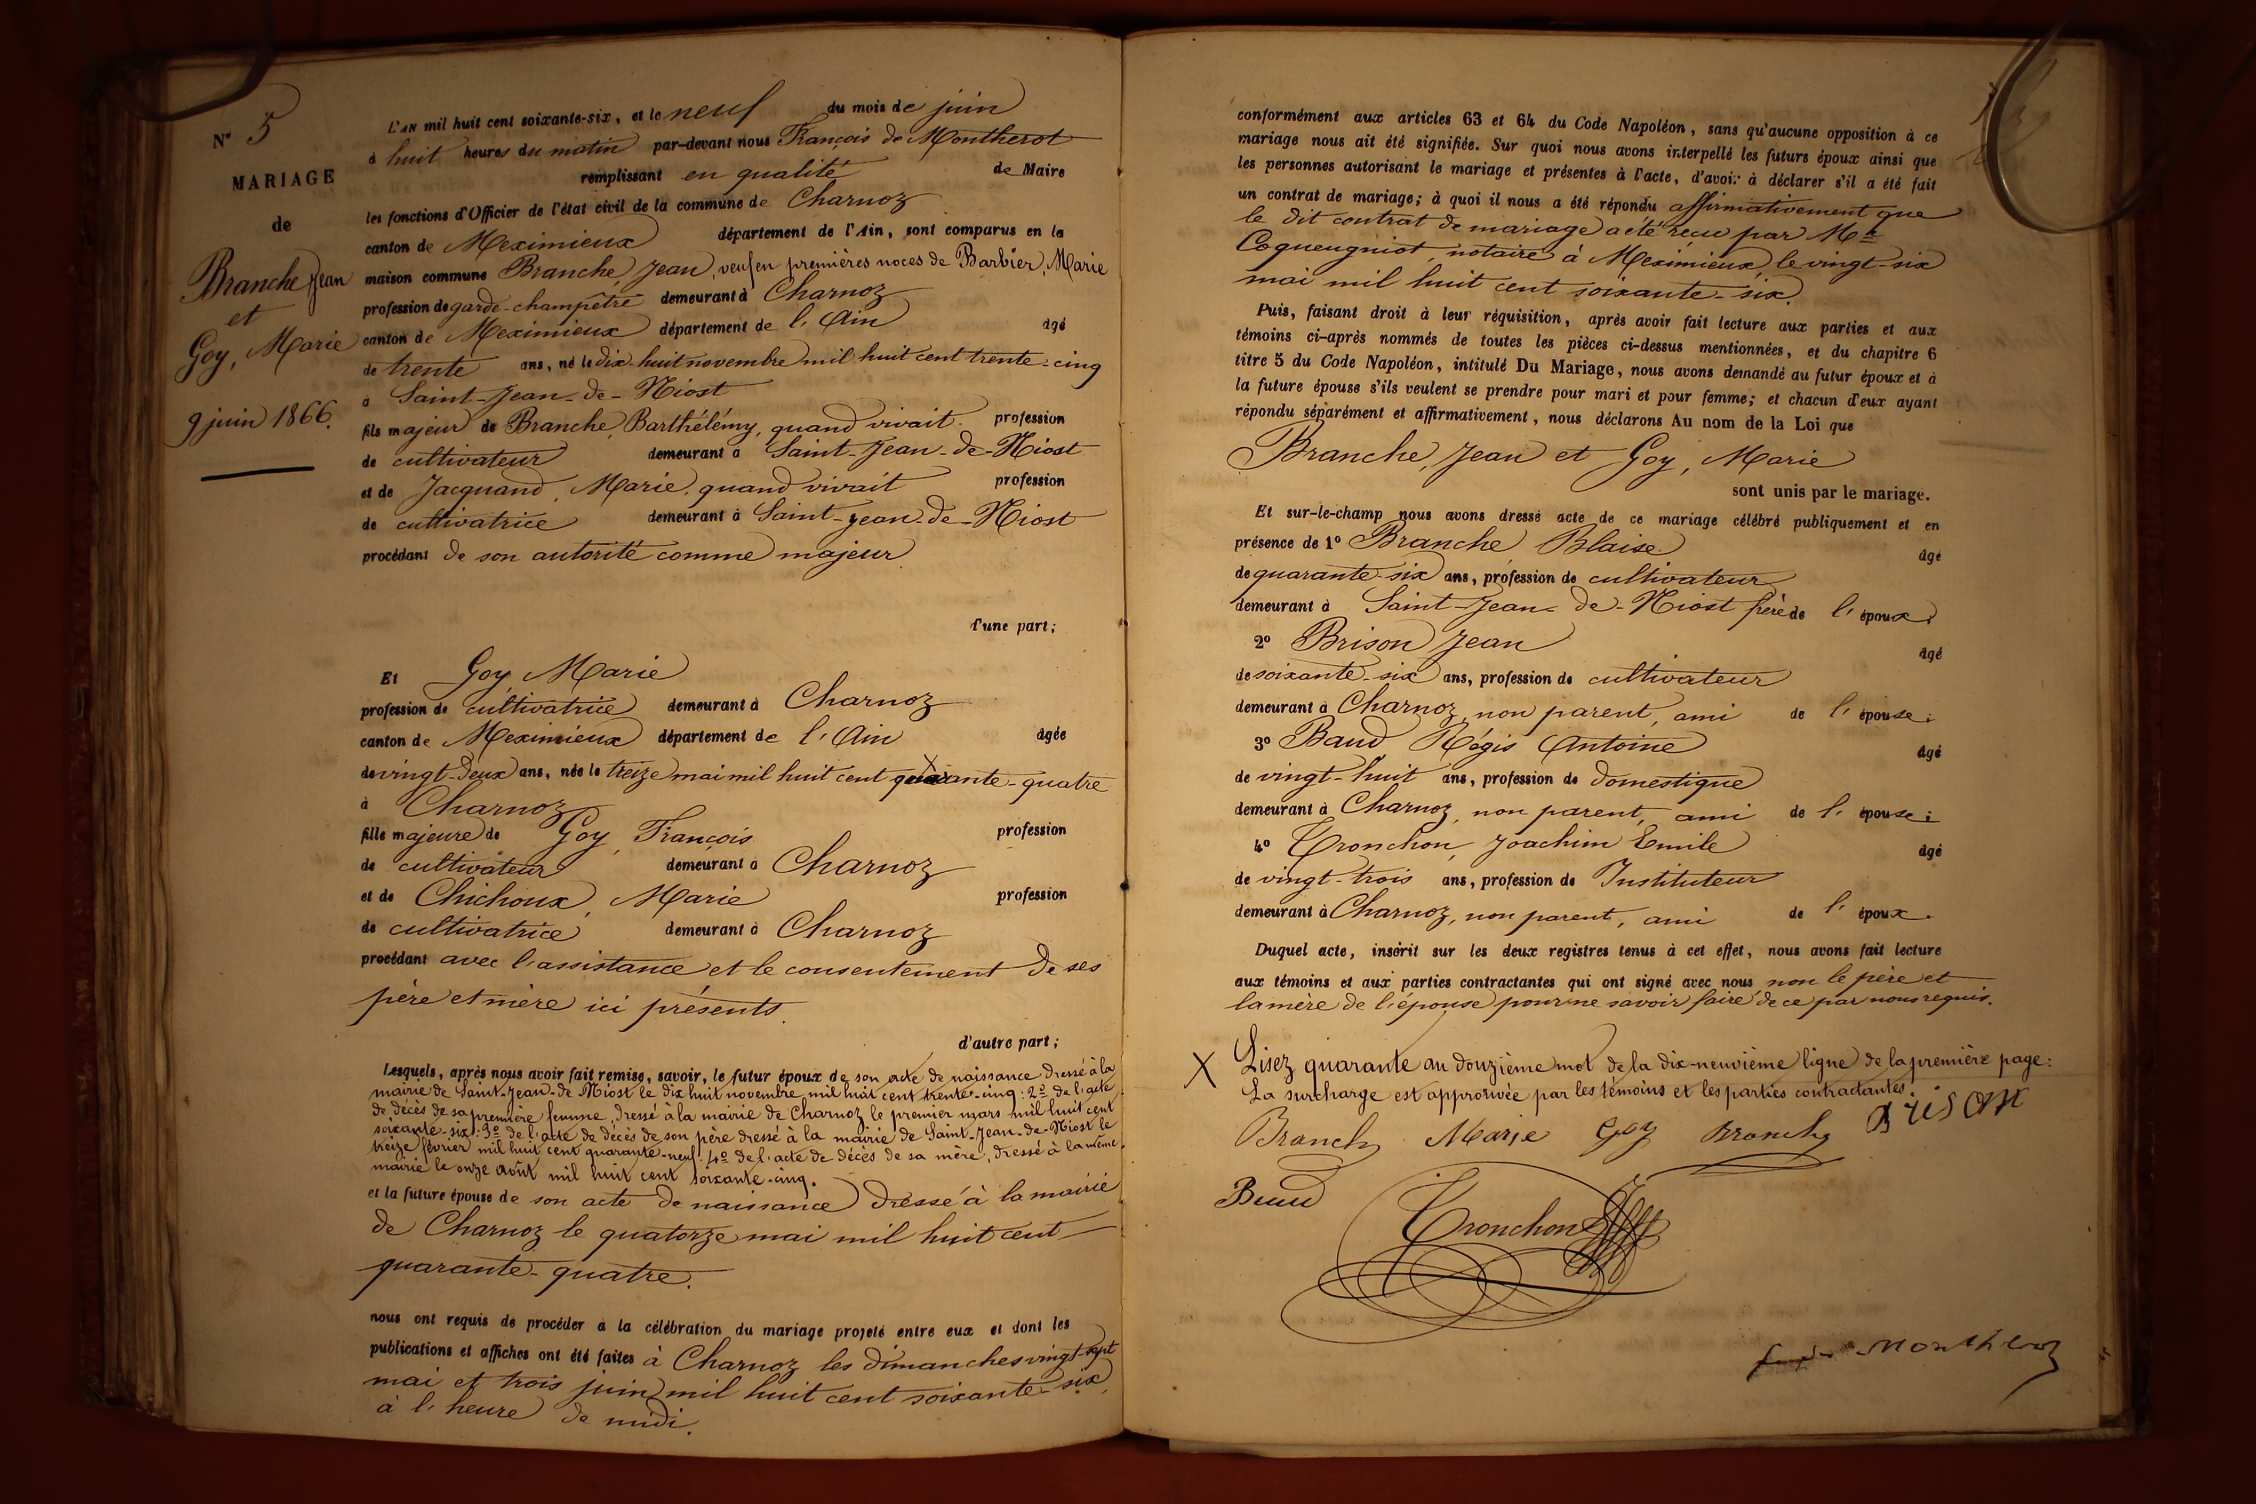 N° 5
MARIAGE
de
Branche Jean
et
Goy, Marie
9 juin 1866.
L'AN mil huit cent soixante-six, et le neuf du mois de juin
à huit heures du matin par-devant nous François de Montherot
remplissant en qualité de Maire
les fonctions d'Officier de l'état civil de la commune de Charnoz
canton de Meximieux département de l'Ain, sont comparus en la
maison commune Branche, Jean, veuf en premières noces de Barbier, Marie
profession de garde-champêtre demeurant à Charnoz
canton de Meximieux département de l'Ain âgé
de trente ans, né le dix-huit novembre mil huit cent trente-cinq
à Saint-Jean-de-Niost
fils majeur de Branche, Barthélémy, quand vivait profession
de cultivateur demeurant à Saint-Jean-de-Niost
et de Jacquand, Marie, quand vivait profession
de cultivatrice demeurant à Saint-Jean-de-Niost
procédant de son autorité comme majeur
d'une part;
Et Goy Marie
profession de cultivatrice demeurant à Charnoz
canton de Meximieux département de l'Ain âgée
de vingt-deux ans, née le treize mai mil huit cent quarante-quatre
à Charnoz
fille majeure de Goy, François profession
de cultivateur demeurant à Charnoz
et de Chichoux, Marie profession
de cultivatrice demeurant à Charnoz
procédant avec l'assistance et le consentement de ses
père et mère ici présents.
d'autre part;
Lesquels, après nous avoir fait remise, savoir, le futur époux de son acte de naissance dressé à la
mairie de Saint-Jean-de-Niost le dix huit novembre mil huit cent trente-cinq: 2° de l'acte
de décès de sa première femme, dressé à la mairie de Charnoz le premier mars mil huit cent
soixante-six: 3° de l'acte de décès de son père dressé à la mairie de Saint-Jean-de-Niost le
treize février mil huit cent quarante-neuf. 4° de l'acte de décès de sa mère, dressé à la même
mairie le onze août mil huit cent soixante-cinq.
et la future épouse de son acte de naissance dressé à la mairie
de Charnoz le quatorze mai mil huit cent
quarante-quatre.
nous ont requis de procéder à la célébration du mariage projeté entre eux et dont les
publications et affiches ont été faites à Charnoz les dimanches vingt-sept
mai et trois juin mil huit cent soixante-six,
à l'heure de midi.
conformément aux articles 63 et 64 du Code Napoléon, sans qu'aucune opposition à ce
mariage nous ait été signifiée. Sur quoi nous avons interpellé les futurs époux ainsi que
les personnes autorisant le mariage et présentes à l'acte, d'avoir à déclarer s'il a été fait
un contrat de mariage; à quoi il nous a été répondu affirmativement que
le dit contrat de mariage a été reçu par Me
Coqueugniot, notaire à Meximieux, le vingt-six
mai mil huit cent soixante-six.
Puis, faisant droit à leur réquisition, après avoir fait lecture aux parties et aux
témoins ci-après nommés de toutes les pièces ci-dessus mentionnées, et du chapitre 6
titre 5 du Code Napoléon, intitulé Du Mariage, nous avons demandé au futur époux et à
la future épouse s'ils veulent se prendre pour mari et pour femme; et chacun d'eux ayant
répondu séparément et affirmativement, nous déclarons Au nom de la Loi que
Branche, Jean et Goy, Marie
sont unis par le mariage.
Et sur-le-champ nous avons dressé acte de ce mariage célébré publiquement et en
présence de 1° Branche Blaise âgé
de quarante-six ans, profession de cultivateur
demeurant à Saint-Jean-de-Niost frère de l'époux;
2° Brison Jean âgé
de soixante-six ans, profession de cultivateur
demeurant à Charnoz, non parent, ami de l'épouse;
3° Baud Régis Antoine âgé
de vingt-huit ans, profession de domestique
demeurant à Charnoz, non parent, ami de l'épouse;
4° Tronchon, Joachim Emile âgé
de vingt-trois ans, profession de Instituteur
demeurant à Charnoz, non parent, ami de l'époux.
Duquel acte, inscrit sur les deux registres tenus à cet effet, nous avons fait lecture
aux témoins et aux parties contractantes qui ont signé avec nous non le père et
la mère de l'épouse pour ne savoir faire de ce par nous requis.
X Lisez quarante au douzième mot de la dix-neuvième ligne de la première page:
La surcharge est approuvée par les témoins et les parties contractantes.
Branch Marie Goy Branche Brison
Baud
Tronchon
Montherot